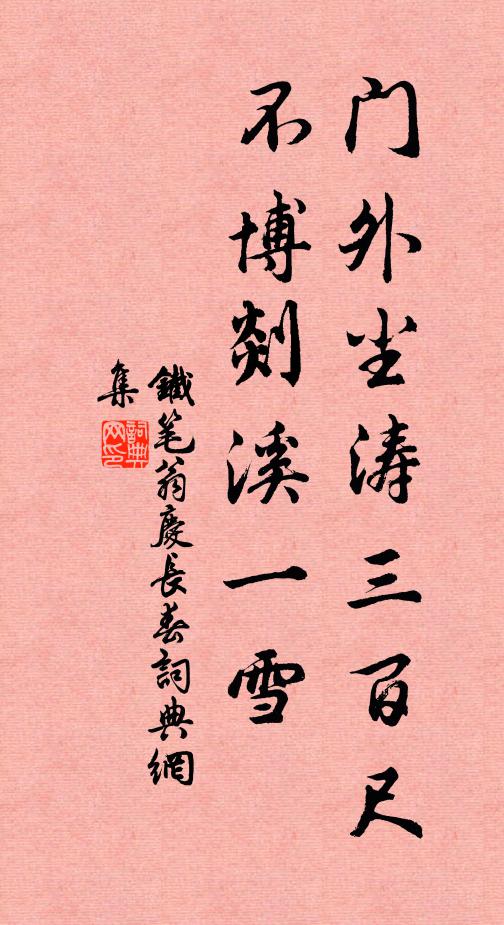 门外尘涛三百尺
不博剡溪一雪
鐵笔翁慶長春詞典網
集
詞典网印